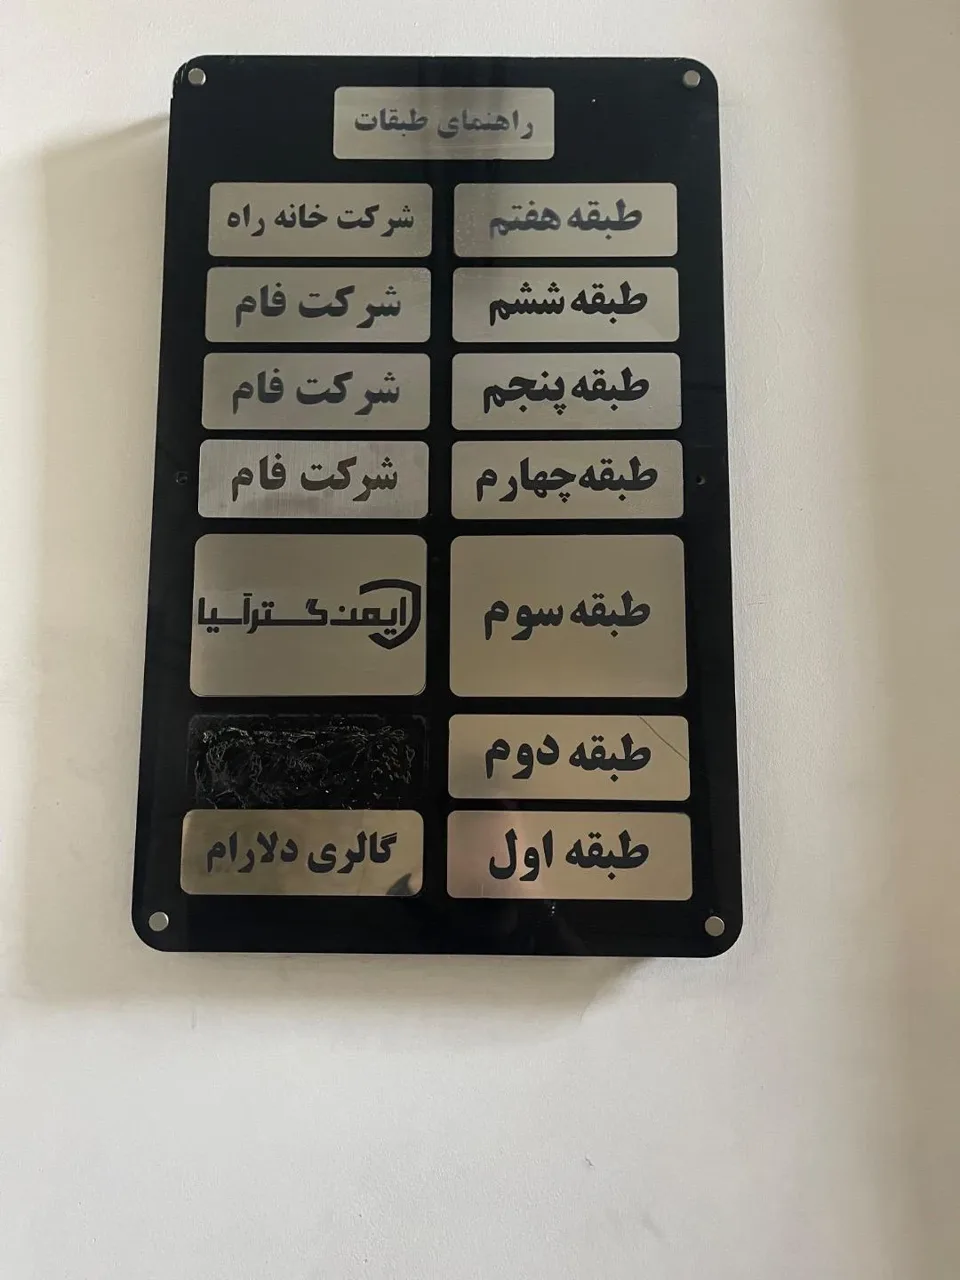 راهنمای طبقات
طبقه هفتم شرکت خانه راه
طبقه ششم شرکت فام
طبقه پنجم شرکت فام
طبقه چهارم شرکت فام
طبقه سوم ایمن گستر آسیا
طبقه دوم
طبقه اول گالری دلارام